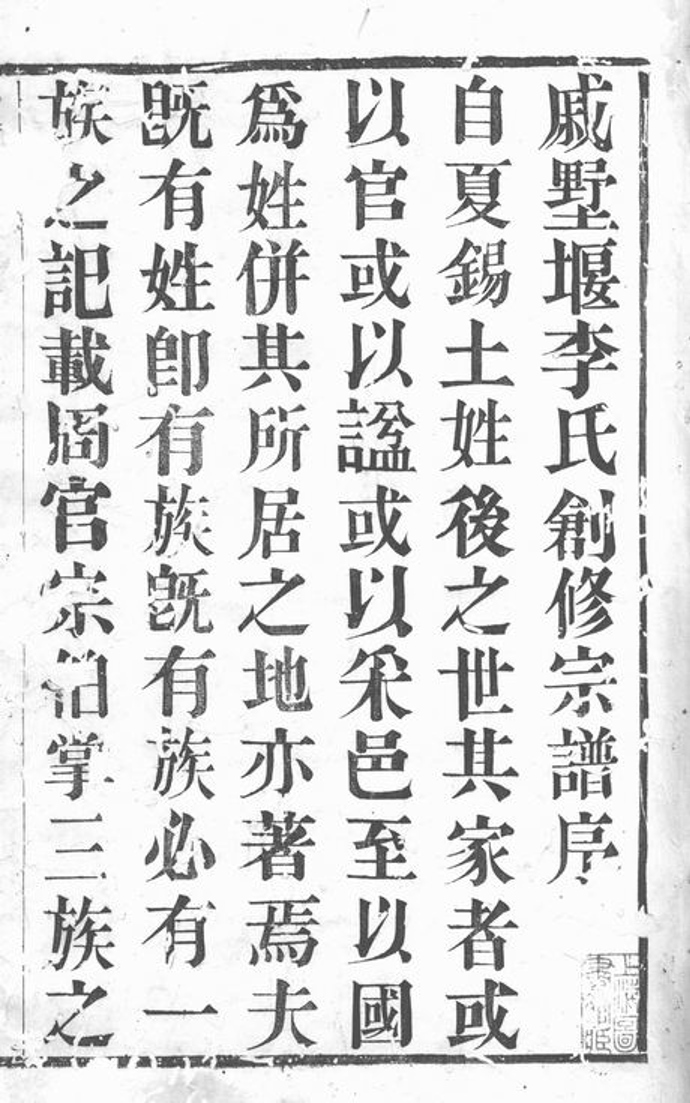 戚墅堰李氏創修宗譜序
自夏錫土姓後之世其家者或
以官或以諡或以采邑至以國
爲姓併其所居之地亦著焉夫
旣有姓卽有族旣有族必有一
族之記載周官宗伯掌三族之